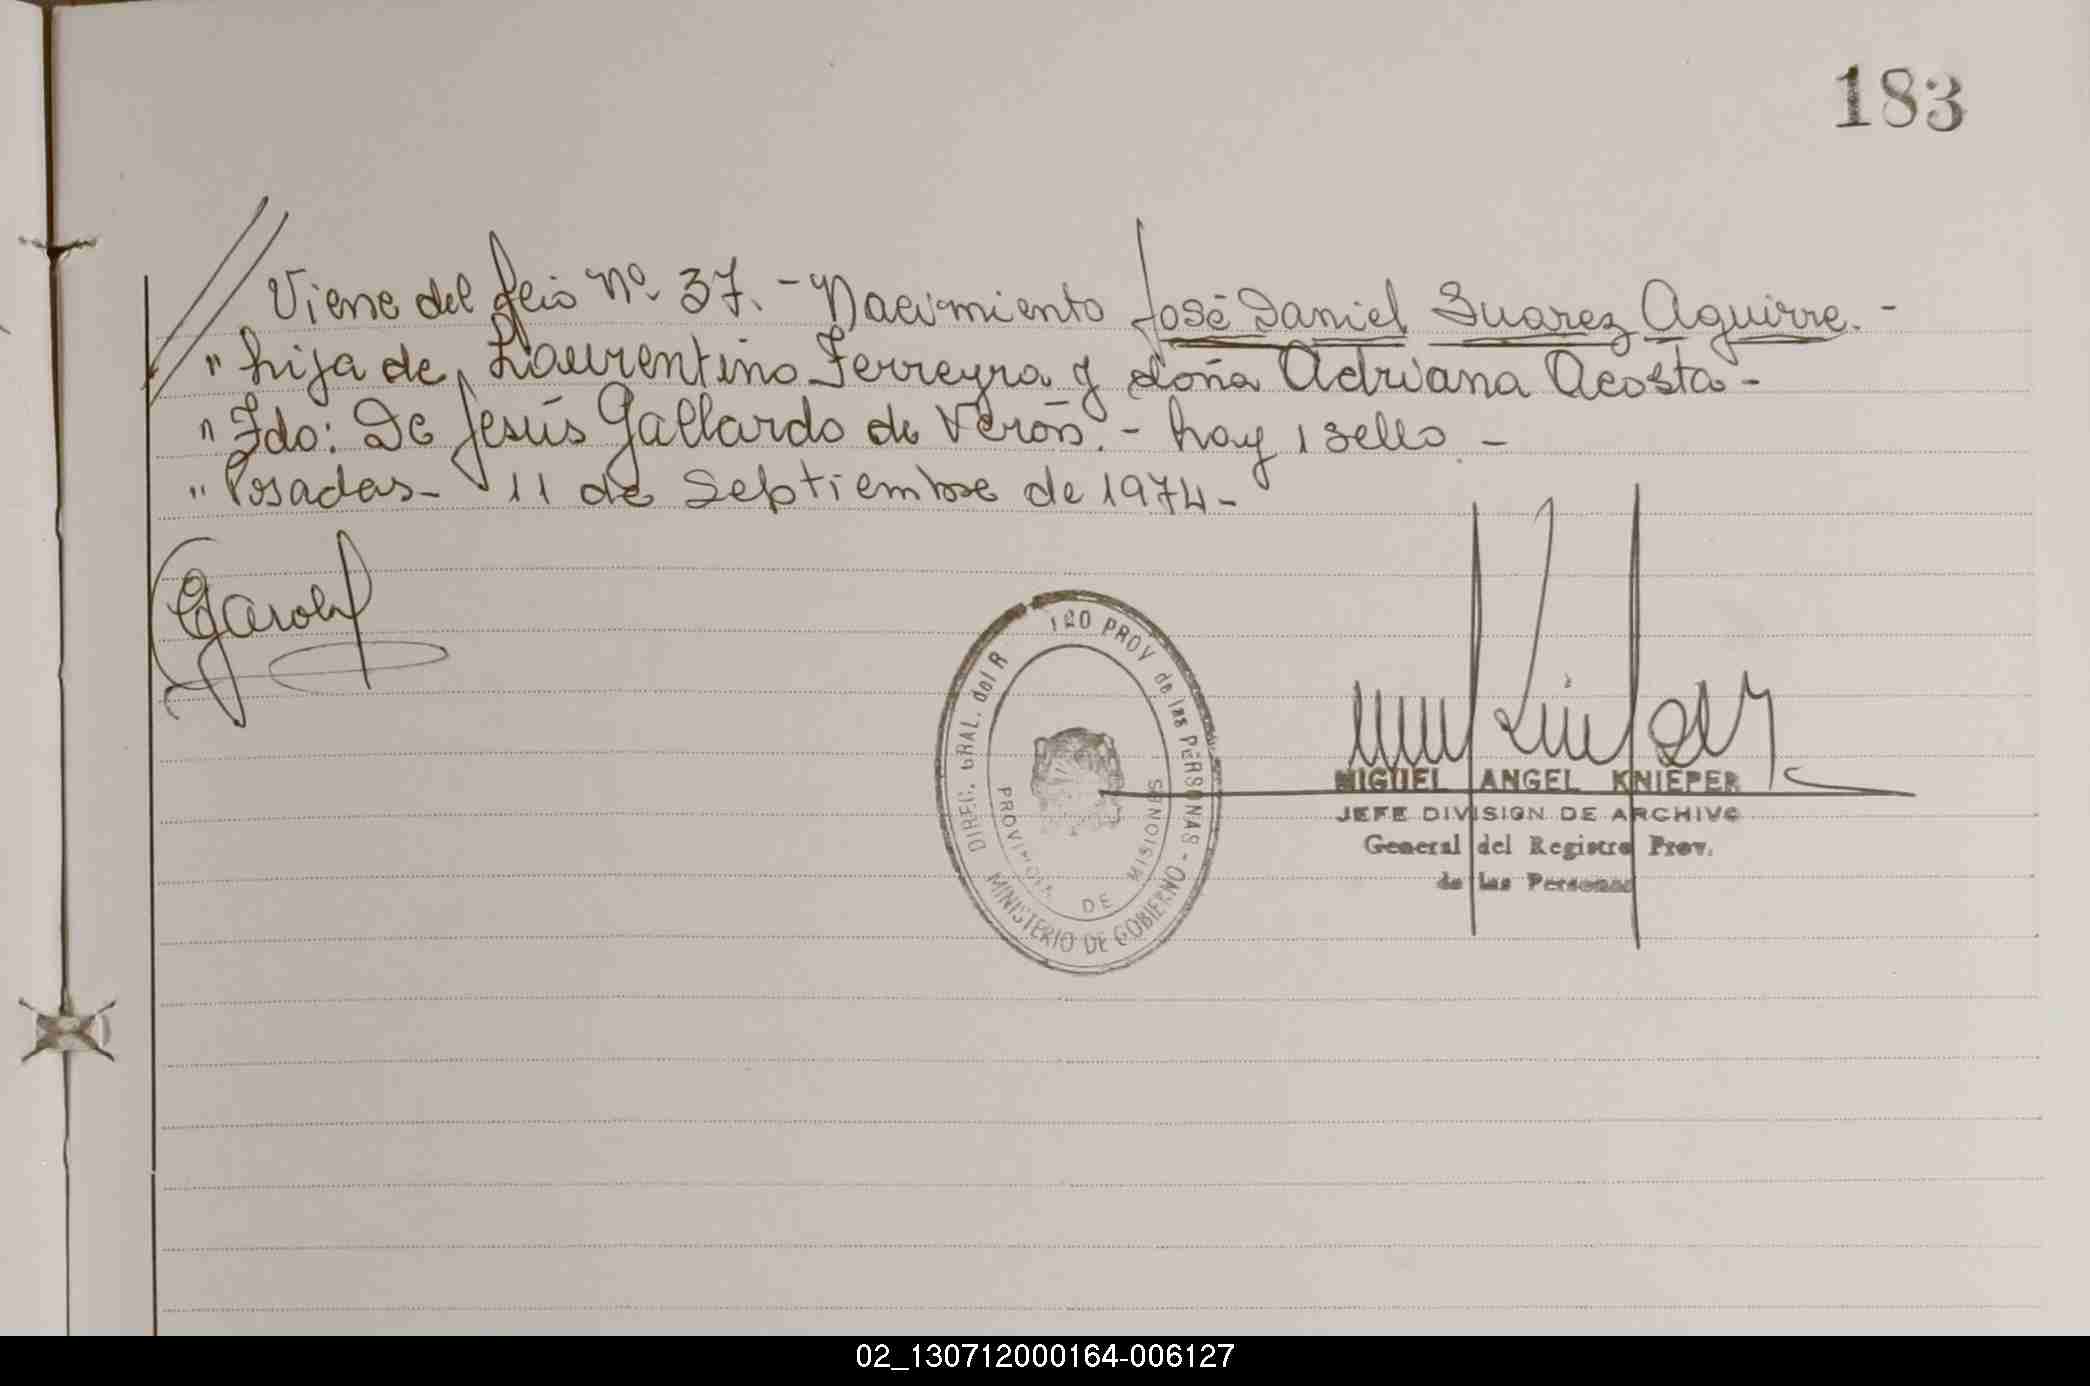 183
Viene del folio Nº 37. - Nacimiento José Daniel Suarez Aguirre. -
" hija de, Laurentino Ferreyra y doña Adriana Acosta -
" Fdo: De Jesús Gallardo de Verón. - hay 1 sello -
" Posadas - 11 de Septiembre de 1974 -
DIREC. GRAL. del R PROV de las PERSONAS - MINISTERIO DE GOBIERNO
PROVINCIA DE MISIONES
MIGUEL ANGEL KNIEPER
JEFE DIVISION DE ARCHIVO
General del Registro Prov.
de las Personas
02_130712000164-006127